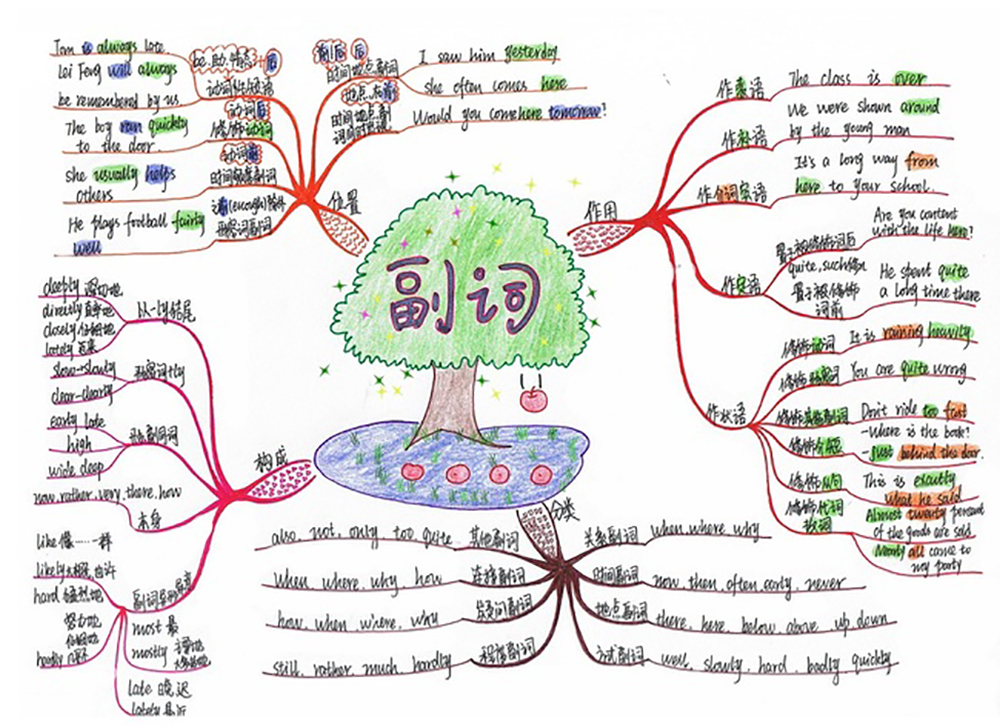 副词
位置
be.助.情态+后
Tom is always late
Lei Feng will always
be remembered by us
动词后
修饰动词
The boy ran quickly
to the door.
动词前
she usually helps
others
形容词副词
He plays football fairly
well
时间地点副词
I saw him yesterday
she often comes here
时间地点副
Would you come here tomorrow?
作用
作表语
The class is over
作补语
We were shown around
by the young man
作介词宾语
It's a long way from
here to your school.
作定语
置于被修饰词后
Are you content
with the life here?
quite, such
置于被修饰
词前
He spent quite
a long time there
作状语
修饰动词
It is raining heavily
修饰形容词
You are quite wrong
修饰其他副词
Don't ride too fast
修饰介短
-Where is the book?
-Just behind the door.
修饰从句
This is exactly
what he said
修饰代词
数词
Almost twenty percent
of the goods are sold
Nearly all came to
my party
构成
以-ly结尾
deeply 深切地
directly 直率地
closely 仔细地
lately 近来
形容词+ly
slow-slowly
clear-clearly
形副同词
early late
high
wide deep
now.rather.very.there.how
本身
like 像……一样
hard
hardly 几乎不
most 最
mostly
late 晚.迟
lately 最近
分类
其他副词
also. not. only. too. quite
连接副词
when. where. why. how
疑问副词
how. when. where. why
程度副词
still. rather. much. hardly
关系副词
when. where. why
时间副词
now. then. often. early. never
地点副词
there. here. below. above. up. down
方式副词
well. slowly. hard. badly. quickly